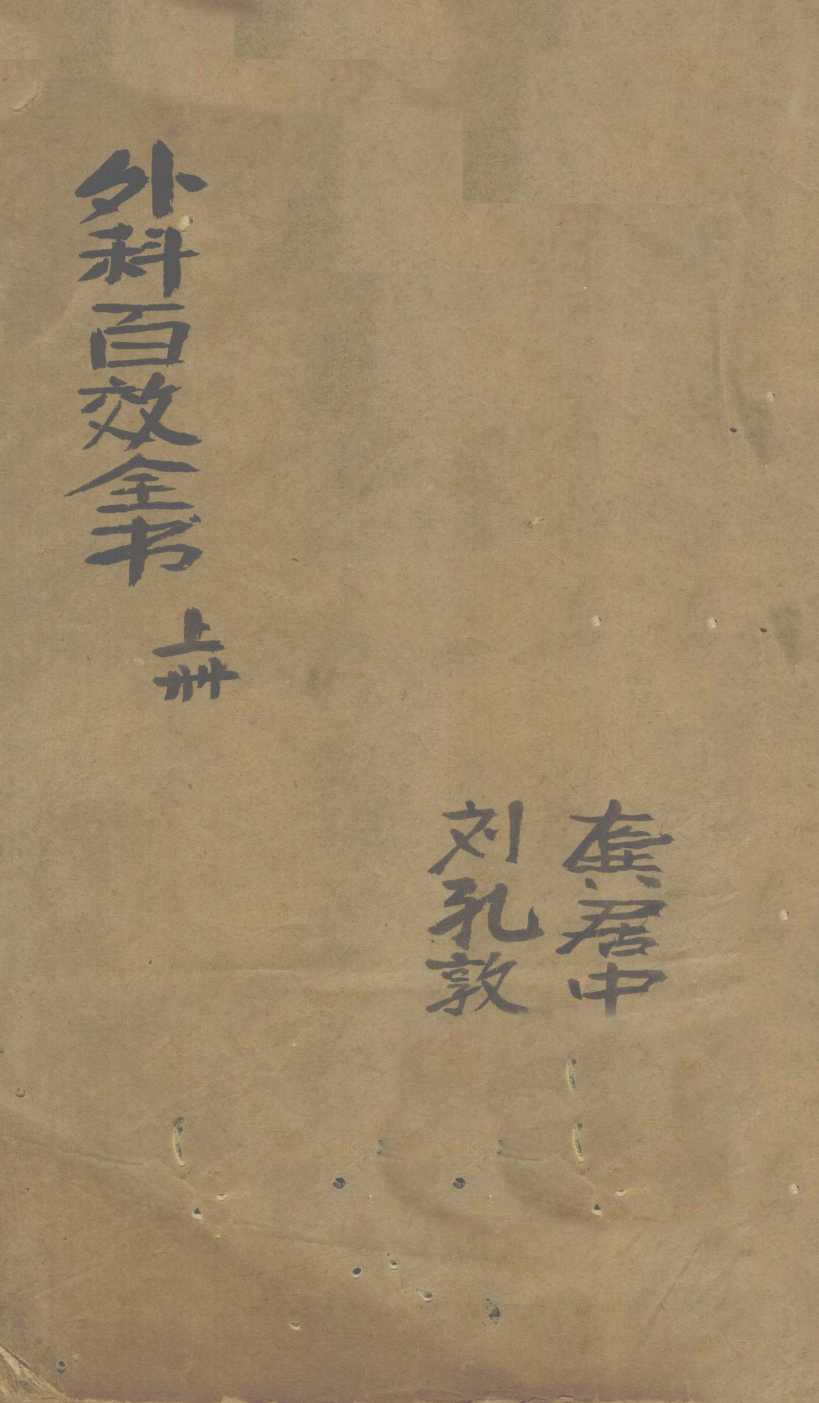 外科百效全书
上册
龚居中
刘孔敦